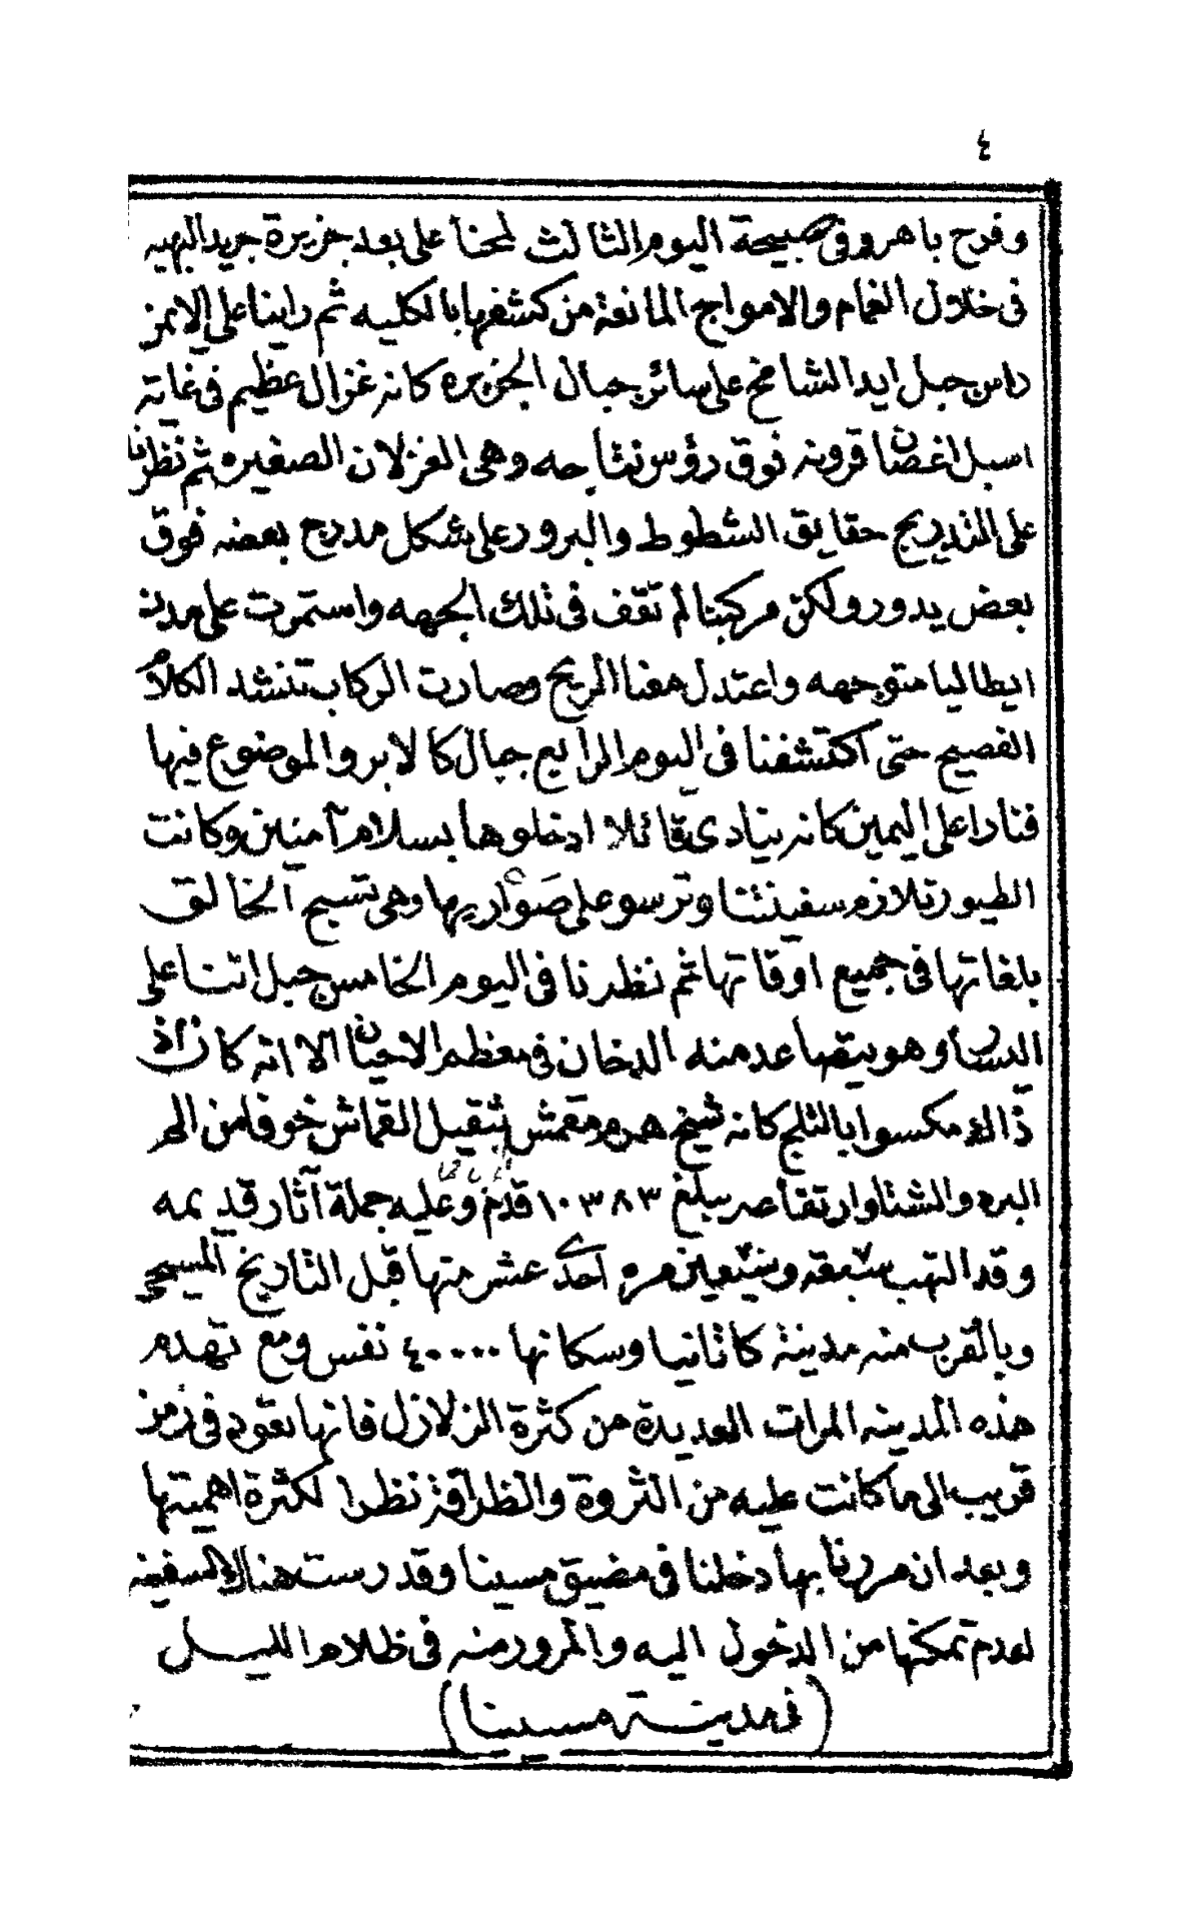 ٤
وفرح باهر وفى صبيحة اليوم الثالث لمحنا على بعد جزيرة جريد البهيه
فى خلال الغمام والامواج المانعة من كشفها بالكليه ثم راينا على الايمن
راس جبل ايد الشامخ على سائر جبال الجزيره كانه غزال عظيم فى غايته
اسبل اغصان قرونه فوق رؤس نتاجه وهى الغزلان الصغيره ثم نظرنا
على التدريج حقايق الشطوط والبرور على شكل مدرج بعضه فوق
بعض يدور ولكن مركبنا لم تقف فى تلك الجهه واستمرت على مدينة
ايطاليا متوجهه واعتدل معنا الريح وصارت الركاب تنشد الكلام
الفصيح حتى اكتشفنا فى اليوم الرابع جبال كالابر والموضوع فيها
فنارا على اليمين كانه ينادى قائلا ادخلوها بسلام آمنين وكانت
الطيور تلازم سفينتنا وترسو على صواريها وهى تسبح الخالق
بلغاتها فى جميع اوقاتها ثم نظرنا فى اليوم الخامس جبل اتنا على
اليسار وهو يتصاعد منه الدخان فى معظم الاحيان الا انه كان اذ
ذالك مكسوا بالثلج كانه شيخ هرم مقمش بثقيل القماش خوفا من الم
البرد والشتا وارتفاعه يبلغ ١٠٣٨٣ قدم وعليه جملة آثار قديمه
وقد التهب سبعة وسبعين مره احدى عشر منها قبل التاريخ المسيحى
وبالقرب منه مدينة كاتانيا وسكانها ٤٠٠٠٠ نفس ومع تهدم
هذه المدينه المرات العديدة من كثرة الزلازل فانها تقوم فى زمن
قريب الى ما كانت عليه من الثروة والظرافة نظرا لكثرة اهميتها
وبعد ان مررنا بها دخلنا فى مضيق مسينا وقد رست هناك السفينه
لعدم تمكنها من الدخول اليه والمرور منه فى ظلام الليل
(فى مدينة مسينا)